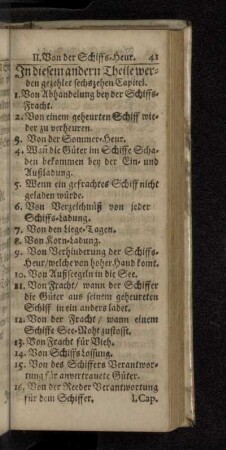 II. Von der Schiffs-Heur. 41
In diesem andern Theile wer-
den gezehlet sechszehen Capitel.
1. Von Abhandelung bey der Schiffs-
Fracht.
2. Von einem geheurten Schiff wie-
der zu verheuren.
3. Von der Sommer-Heur.
4. Wañ die Güter im Schiffe Scha-
den bekommen bey der Ein- und
Außladung.
5. Wenn ein gefrachtes Schiff nicht
geladen würde.
6. Von Verzeichnüß von jeder
Schiffs-Ladung.
7. Von den Liege-Tagen.
8. Von Korn-Ladung.
9. Von Verhinderung der Schiffs-
Heur/welche von hoher Hand komt.
10. Von Außseegeln in die See.
11. Von Fracht/ wann der Schiffer
die Güter aus seinem geheureten
Schiff in ein anders ladet.
12. Von der Fracht/ wann einem
Schiffe See-Noht zustosst.
13. Von Fracht für Vieh.
14. Von Schiffs Lossung.
15. Von des Schiffers Verantwor-
tung für anvertrauete Güter.
16. Von der Reeder Verantwortung
für dem Schiffer. 1. Cap.